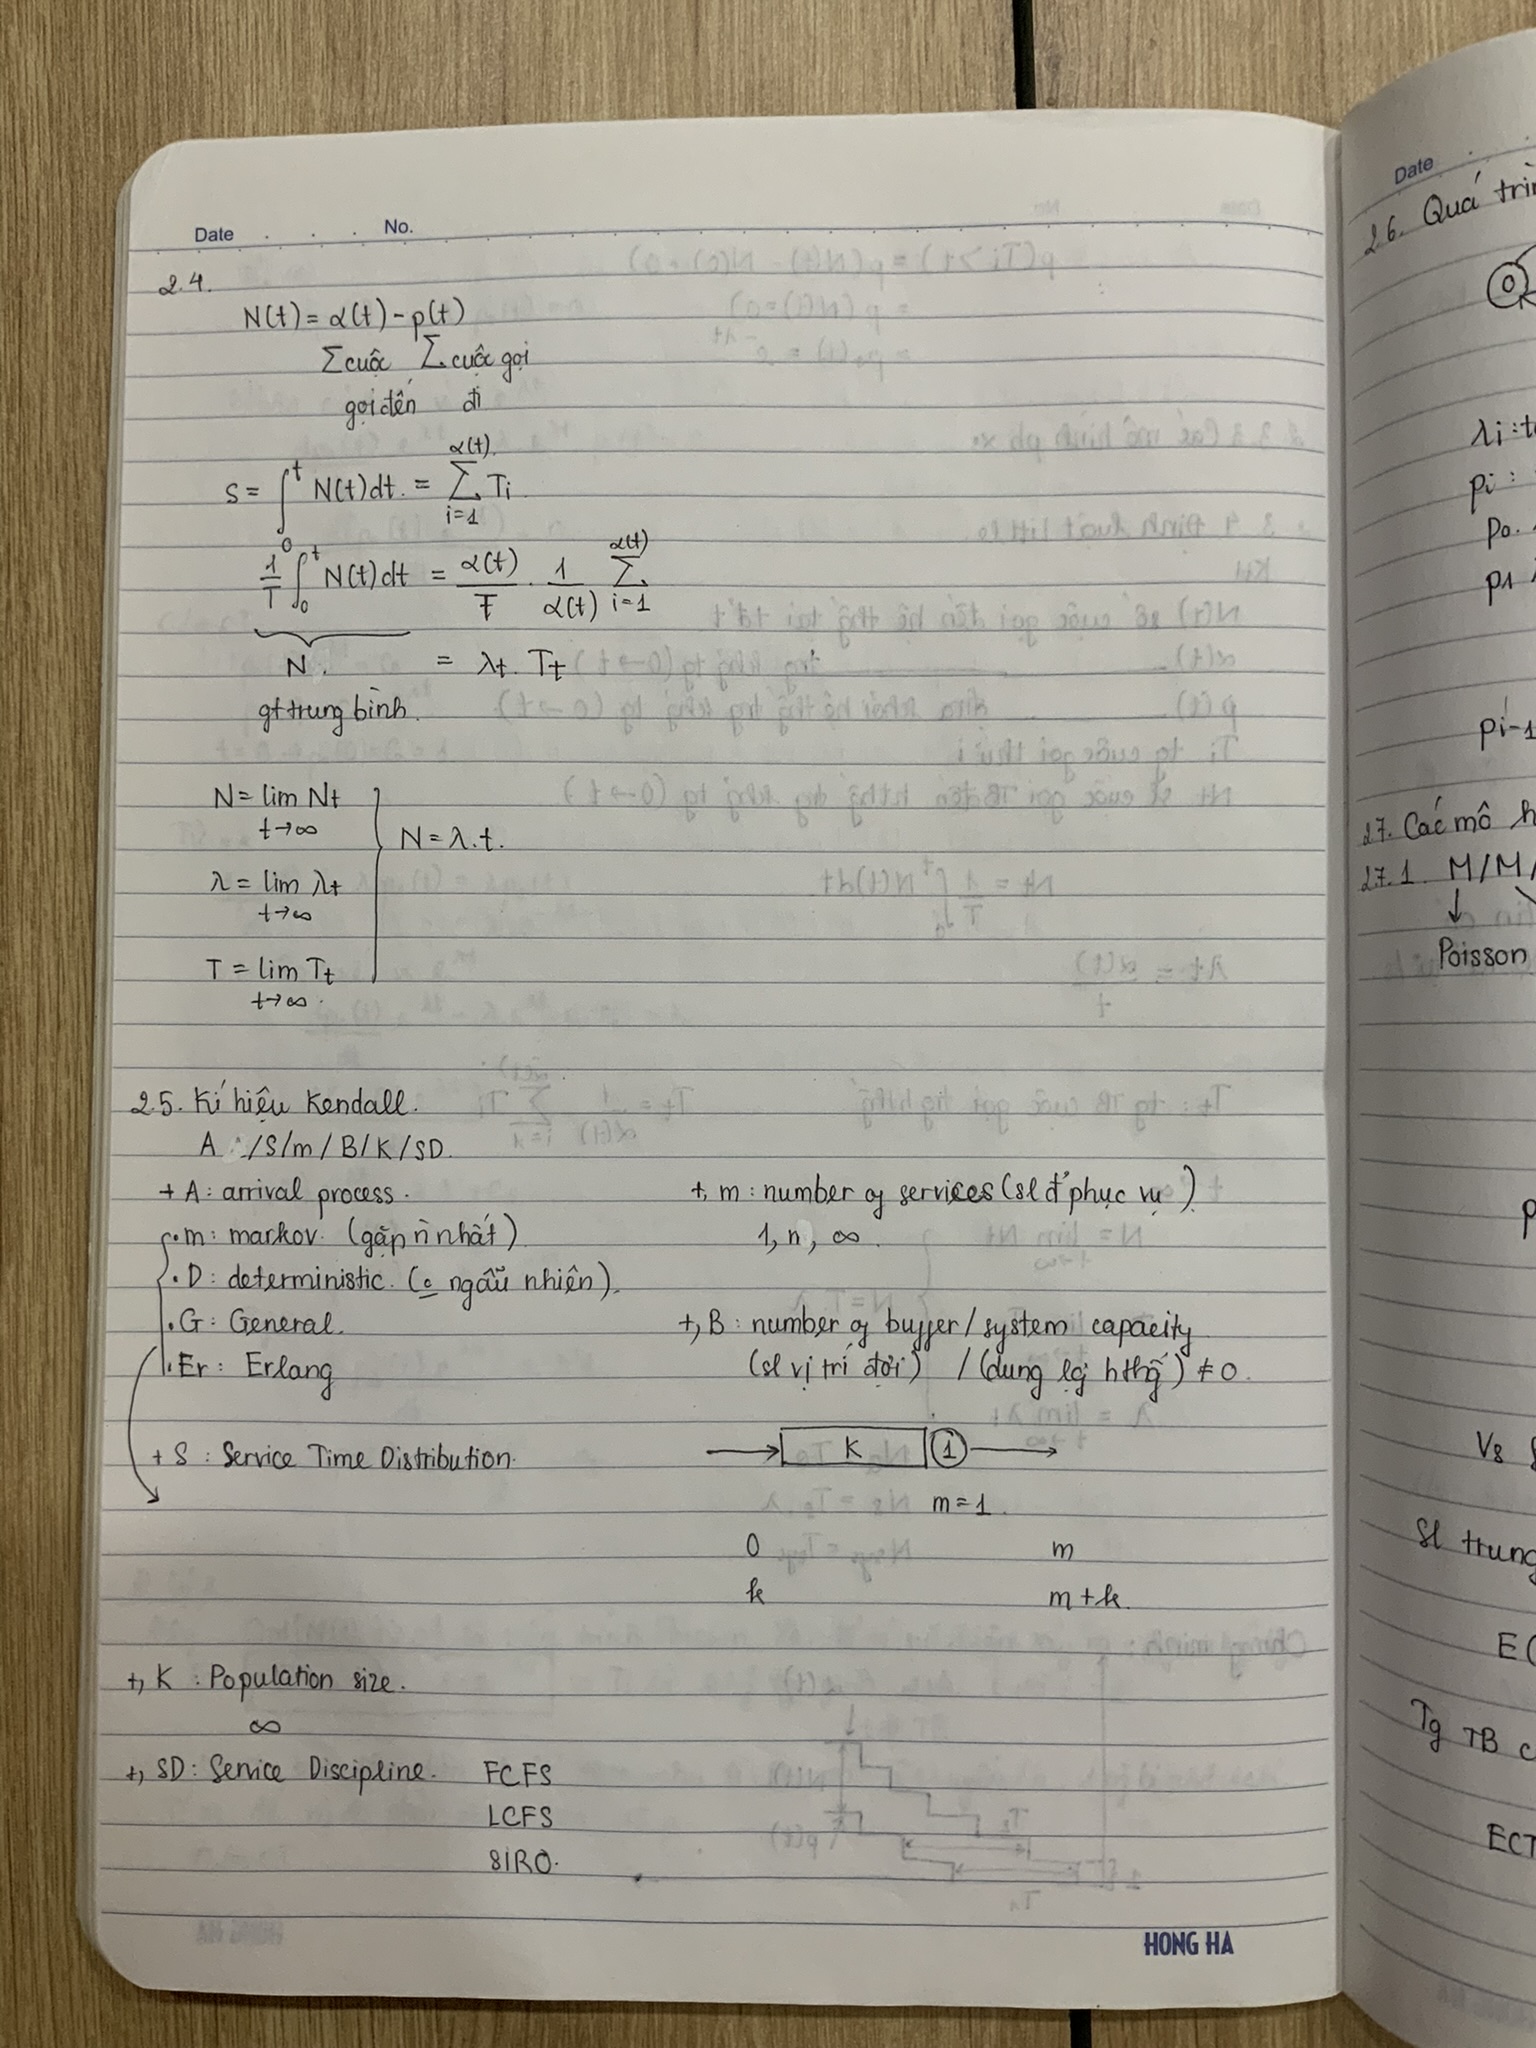 Date . . . No.
2.4.
N(t) = α(t) - p(t)
Σ cuộc Σ cuộc gọi
gọi đến đi
S = ∫₀ᵗ N(t)dt. = Σ_{i=1}^{α(t)} Ti
1/T ∫₀ᵗ N(t)dt = α(t)/T . 1/α(t) Σ_{i=1}^{α(t)}
N = λt. Tt
gt trung bình.
N = lim Nt
t→∞
N = λ.t.
λ = lim λt
t→∞
T = lim Tt
t→∞
2.5. Kí hiệu Kendall.
A /S/m/B/K/SD.
+ A: arrival process.
. m: markov. (gặp n̄ nhất)
. D: deterministic. (c̱ ngẫu nhiên).
. G: General.
. Er: Erlang
+ S : Service Time Distribution.
+, m: number of services (sl đ' phục vụ)
1, n, ∞.
+, B: number of buffer / system capacity
(sl vị trí đợi) / (dung lg hthg) ≠ 0.
K 1
m = 1.
0 m
k m + k.
+, K : Population size.
∞
+, SD: Service Discipline. FCFS
LCFS
SIRO.
HONG HA
Date
2.6. Quá
λi :
pi :
p0.
p1
pi-1
2.7. Các mô
2.7.1. M/M/
Poisson
Vs
Sl trung
E(
Tg TB